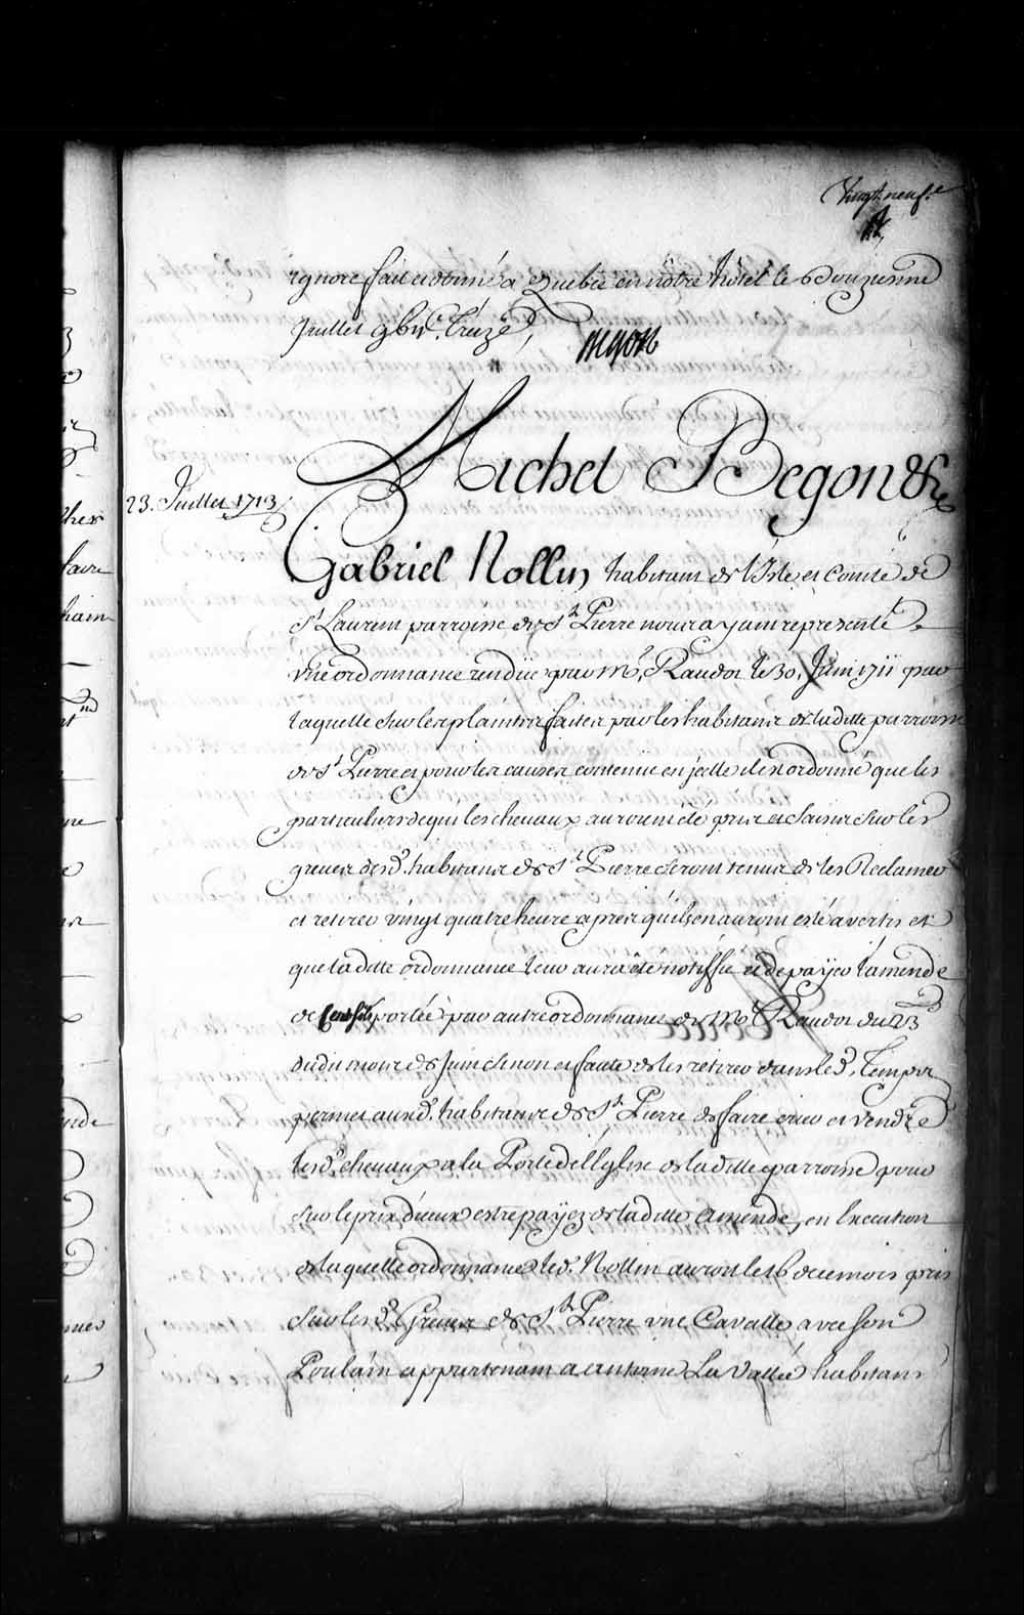 Vingt neuf.e
ignore fait et donné a Quebec en nôtre hôtel le Douzieme
Juillet gbiiC. treize,
Begon
Michel Begon &c
23. Juillet 1713
Gabriel Nollin habitant de l'Isle et Comté de
St Laurent parroisse de St Pierre nous ayant representé
vne ordonnance rendüe par Mr. Raudot le 30. Juin 1711 par
laquelle sur les plaintes faites par les habitans de laditte parroisse
de St Pierre et pour les causes contenue en jcelle il est ordonné que les
particuliers de qui les chevaux auront été pris et saisis sur les
greves desd. habitans de St Pierre seront tenus de les Reclamer
et retirer vingt quatre heure apres qu'ils en auront esté avertis et
que laditte ordonnance leur aura été notiffié et de payer l'amende
de portée par autre ordonnance de Mr Raudot du 23
dudit mois de Juin sinon et faute de les retirer dans led. temps
permet ausd. habitans de St Pierre de faire crier et vendre
lesd. chevaux a la Porte de l'Eglise de laditte parroisse pour
sur le prix d'iceux estre payez de laditte amende, en Execution
de laquelle ordonnance led. Nollin auroit le 16 de ce mois pris
sur lesd. Greves de St Pierre vne Cavalle avec son
Poulain appartenant a antoine La Vallée habitant